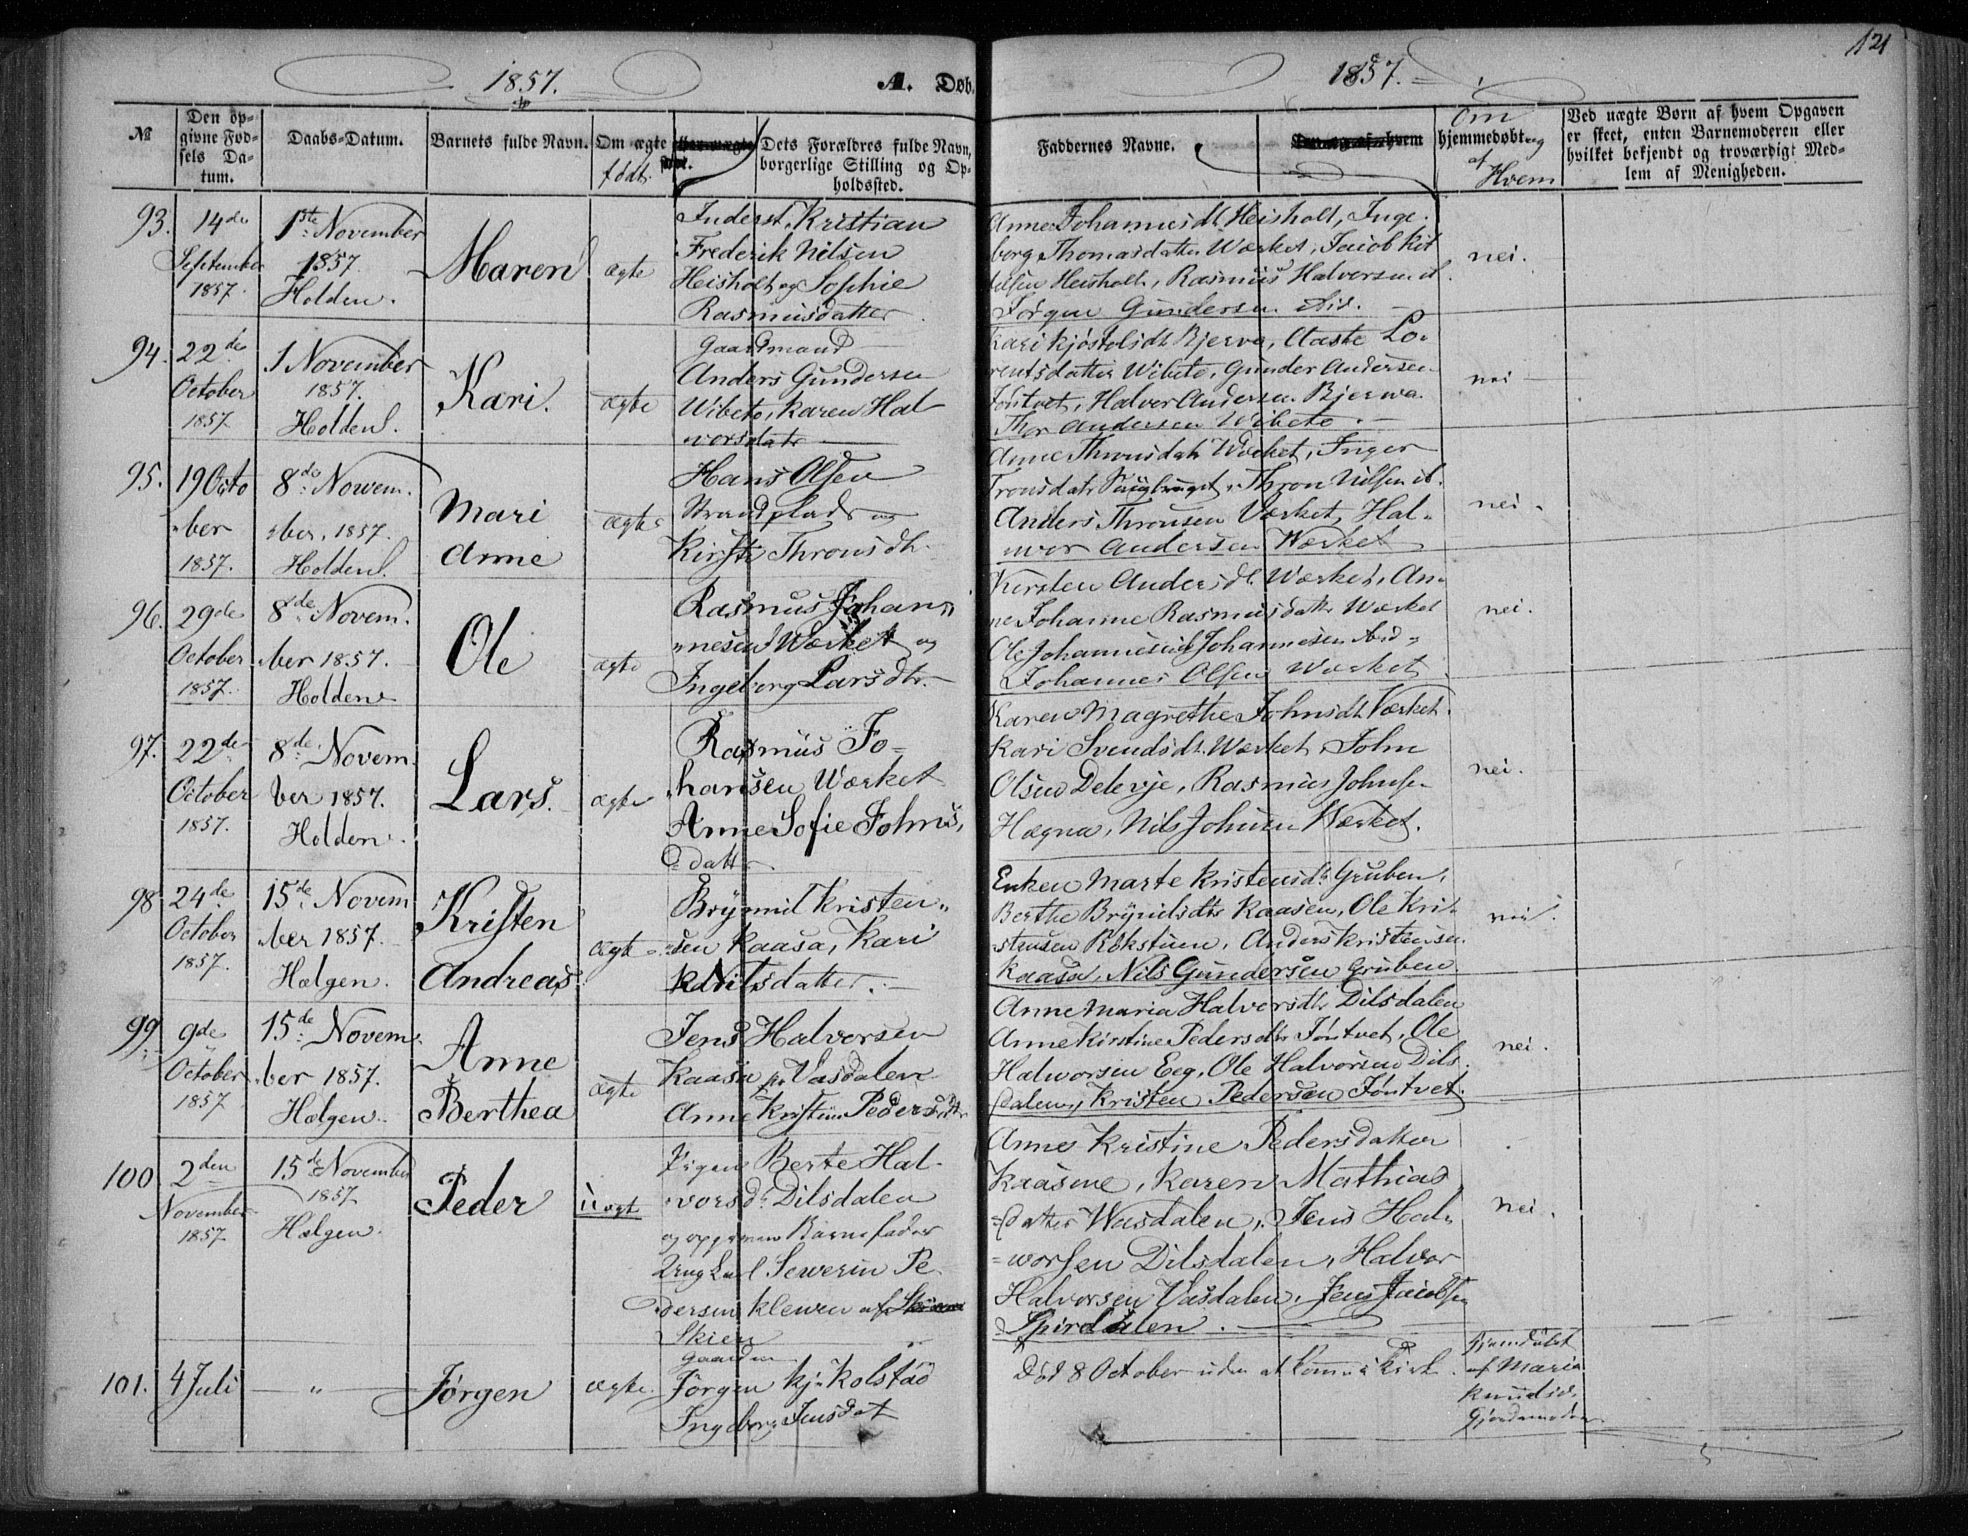 1857.
A. Døb.
1857.
121
№
Den op-
givne Fød-
sels Da-
tum.
Daabs-Datum.
Barnets fulde Navn.
Om ægte
født.
Dets Forældres fulde Navn,
borgerlige Stilling og Op-
holdssted.
Faddernes Navne.
Om
hjemmedøbt og
af
Hvem
Ved uægte Børn af hvem Opgaven
er skeet, enten Barnemoderen eller
hvilket bekjendt og troværdigt Med-
lem af Menigheden.
93.
14de
September
1857.
1ste November
1857.
Holden.
Maren
ægte
Inderst, Kristian
Frederik Nilsen
Heisholt og Sophie
Rasmusdatter.
Anne Johannesdt. Heisholt, Inge-
borg Thomasdatter Værket, Jacob Kit
telsen Heisholt, Rasmus Halvorsen ib.
Jørgen Gundersen ibid.
nei.
94.
22de
October
1857
1 November
1857.
Holden.
Kari.
ægte
Gaardmand
Anders Gundersen
Wibeto, Karen Hal
vorsdatr
Kari Kjøstolsdt. Bjerva, Aaste Lo-
rentsdatter Wibeto, Gunder Andersen
Jøntvet, Halvor Andersen Bjerva
Thor Andersen Wibeto.
nei
95.
19 Octo
ber
1857.
8de Novem.
ber, 1857.
Holden.
Mari
Anne
ægte
Hans Olsen
Strandplads og
Kirsti Thronsdtr.
Anne Thronsdatr Wærket, Inger
Tronsdatr Saugbruget, Thron Nilsen ib.
Anders Thronsen Værket, Hal-
vor Andersen Værket
nei.
96.
29de
October
1857.
8de Novem.
ber 1857.
Holden
Ole
ægte
Rasmus Johan-
nesen Wærket og
Ingeborg Larsdtr.
Kirsten Andersdt. Wærket, An-
ne Johanne Rasmusdatter Wærket
Ole Johannesen Johannesen
Johannes Olsen Wærket
nei.
97.
22de
October
1857.
8de Novem
ber 1857.
Holden.
Lars.
ægte
Rasmus Jo-
hansen Wærket
Anne Sofie Johns,
datter
Karen Magrethe Johnsdt. Værket.
Kari Svendsdt. Wærket, John
Olsen Deleje, Rasmus Johnsen
Hægna, Nils Johnsen Værket.
nei.
98
24de
October
1857.
15de Novem
ber 1857.
Helgen.
Kristen
Andreas
ægte
Brynnil Kristen-
sen Kaasa, Kari
Nilsdatter.
Enken Marte Kristensdtr Gruben,
Berthe Brynilsdtr Kaasen, Ole Kri-
stensen Røkstuen, Anders Kristensen
Kaasa, Nils Gundersen Gruben
nei.
99
9de
October
1857
15de Novem
ber 1857.
Helgen.
Anne
Berthea
ægte
Jens Halvorsen
Kaasa pr Vasdalen
Anne Kristine Pedersdtr
Anne Maria Halversdtr Dilsdalen
Anne Kirstine Pedersdtr Jøntvet, Ole
Halvorsen Eeg, Ole Halvorsen Dils
dalen, Kristen Pedersen Jøntvet.
nei.
100
2den
November
1857
15de November
1857
Helgen.
Peder
Uægt
Pigen Berte Hal-
vorsdr. Dilsdalen
og opgiven Barnefader
Ung Severin Pe
dersen Klewen af
Skien
Anne Kristine Pedersdatter
Kaasene, Karen Mathias
datter Wasdalen, Jens Hal-
vorsen Dilsdalen, Halvor
Halvorsen Vasdalen, Jens Jacobsen
Spirdalen.
nei.
101.
4 Juli
"
Jørgen
ægte.
Gaardm
Jørgen Kj. Kolstad
Ingeborg Jensdat
Død 8 October uden at komme i Kirk.
Hjemdøbt
af Maria
Knudsd.
Gjordemoder